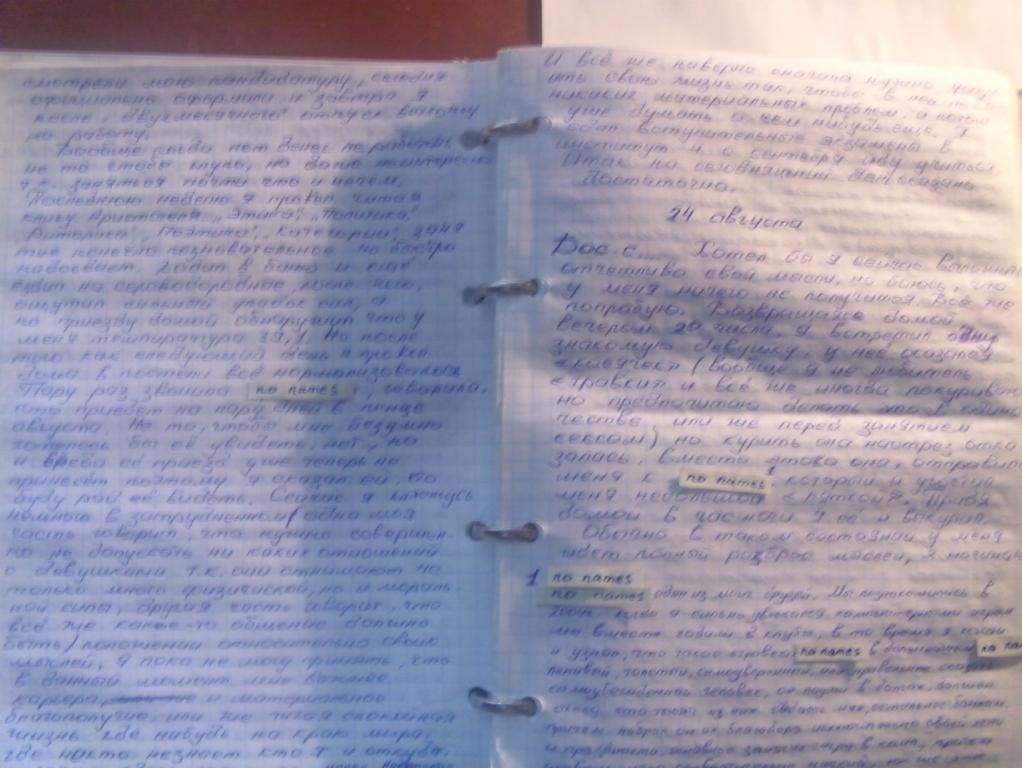 смотрели мою кандидатуру, сегодня
официально оформили и завтра я
после, двухмесячного отпуска выхожу
на работу.
Вообще когда нет денег не работать
не то чтобы глупо, но даже неинтересно
т.к. заняться почти что и нечем.
Последнюю неделю я провёл читая
книгу Аристотеля „Этика", „Политика",
„Риторика", „Поэтика", „Категории", заня
тие конечно познавательное но быстро
надоедает. Ходил в баню и ещё
после чего,
ощутил сильный упадок сил, а
по приезду домой обнаружил что у
меня температура 39,1. Но после
того как следующий день я провёл
дома в постели всё нормализовалось
Пару раз звонила no names, говорила,
что приедет на пару дней в конце
августа. Не то, чтобы мне безумно
хотелось бы её увидеть, нет, но
и вреда её приезд уже теперь не
принесёт поэтому я сказал ей, что
буду рад её видеть. Сейчас я нахожусь
немного в затруднённом (одна моя
часть говорит, что нужно совершен-
но не допускать ни каких отношений
с девушками т.к. они отнимают не
только много физической, но и мораль
ной силы, другая часть говорит, что
всё же какое-то общение должно
быть) положении относительно своих
мыслей, я пока не могу принять, что
в данный момент мне важнее
карьера, и материальное
благополучие, или же тихая спокойная
жизнь где нибудь на краю мира,
где никто не знает кто я и откуда.
И всё же наверно сначала нужно
свою жизнь так, чтобы в ней не
никаких материальных проблем, а потом
уже думать о чем нибудь ещё. Я
сдал вступительные экзамены в
институт и с сентября иду учиться.
Итак на сегодняшний день сказано
достаточно.
24 августа
Вос-с... Хотел бы я сейчас вспомнить
отчетливо свои мысли, но боюсь, что
у меня ничего не получится. Всё же
попробую. Возвращаясь домой,
вечером 20 числа, я встретил одну
знакомую девушку, у неё оказался
«косячек» (вообще я не любитель
«травки» и всё же иногда покуриваю
но предпочитаю делать это в одино
честве, или же перед занятием
сексом) но курить она наотрез отка
залась, вместо этого она, отправила
меня к no names 1 который и угостил
меня небольшой «пяткой». Придя
домой в час ночи я её и выкурил.
Обычно в таком состоянии у меня
идёт полный разброс мыслей, я начинаю
1 no names
no names один из моих друзей. Мы познакомились в
когда я сильно увлекался компьютерными играми
мы вместе ходили в клубы, в то время я
и узнал, что такое no names в no na
ленивый, толстый, самоуверенный,
человек,